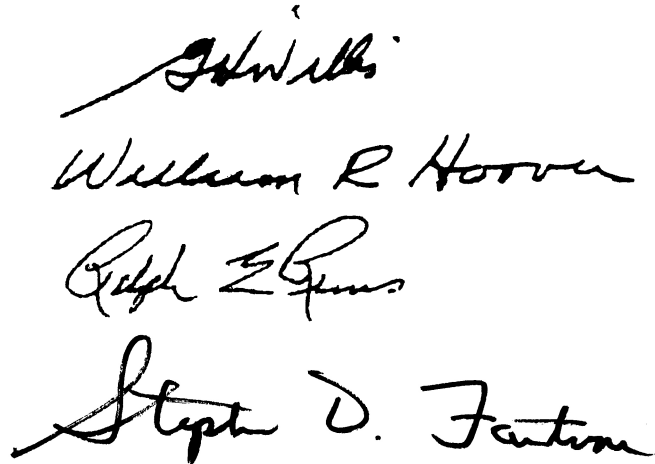 G H Willis
William R Hoover
Ralph E
Stephen D. Fantone